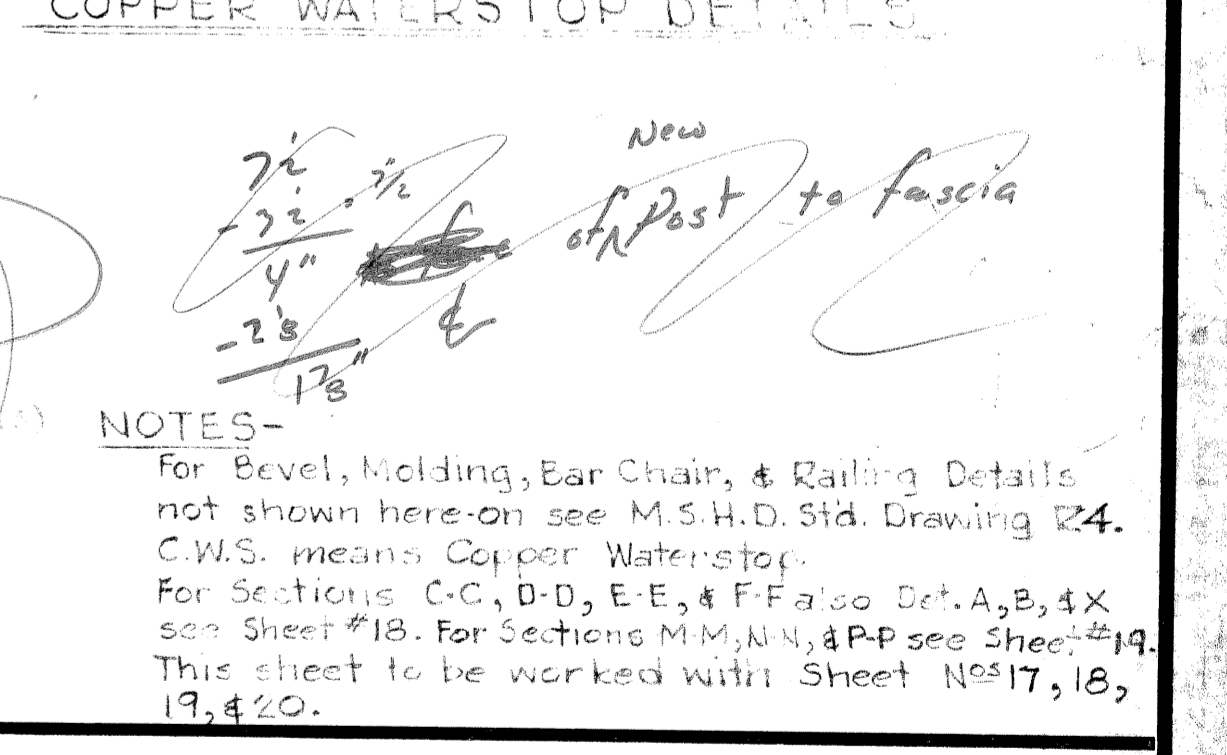 COPPER WATERSTOP DETAILS
New
℄ of Post to fascia
4"
1 7/8"
NOTES-
For Bevel, Molding, Bar Chair, & Railing Details
not shown here-on see M.S.H.D. Std. Drawing R4.
C.W.S. means Copper Waterstop.
For Sections C-C, D-D, E-E, & F-F also Det. A, B, & X
see Sheet #18. For Sections M-M, N-N, & P-P see Sheet #19.
This sheet to be worked with Sheet Nos 17, 18,
19, & 20.